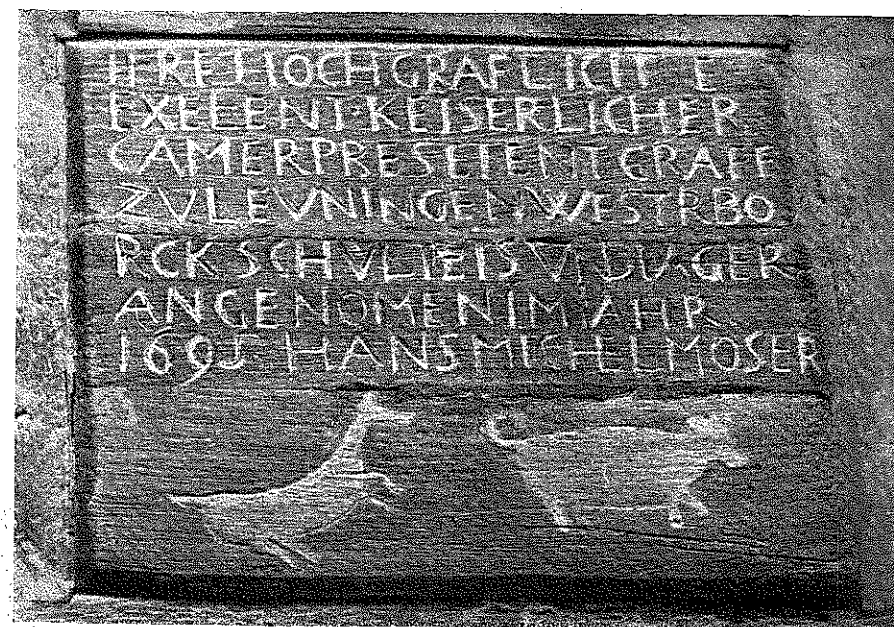 IHRE HOCH GRAFLICHE
EXELENT KEISERLICHER
CAMERPRESEIENT GRAFF
ZV LEVNINGEN WESTRBO
RCK SCHVLTEIS JAGER
ANGENOMEN IM IAHR
1695 HANS MICHEL MOSER